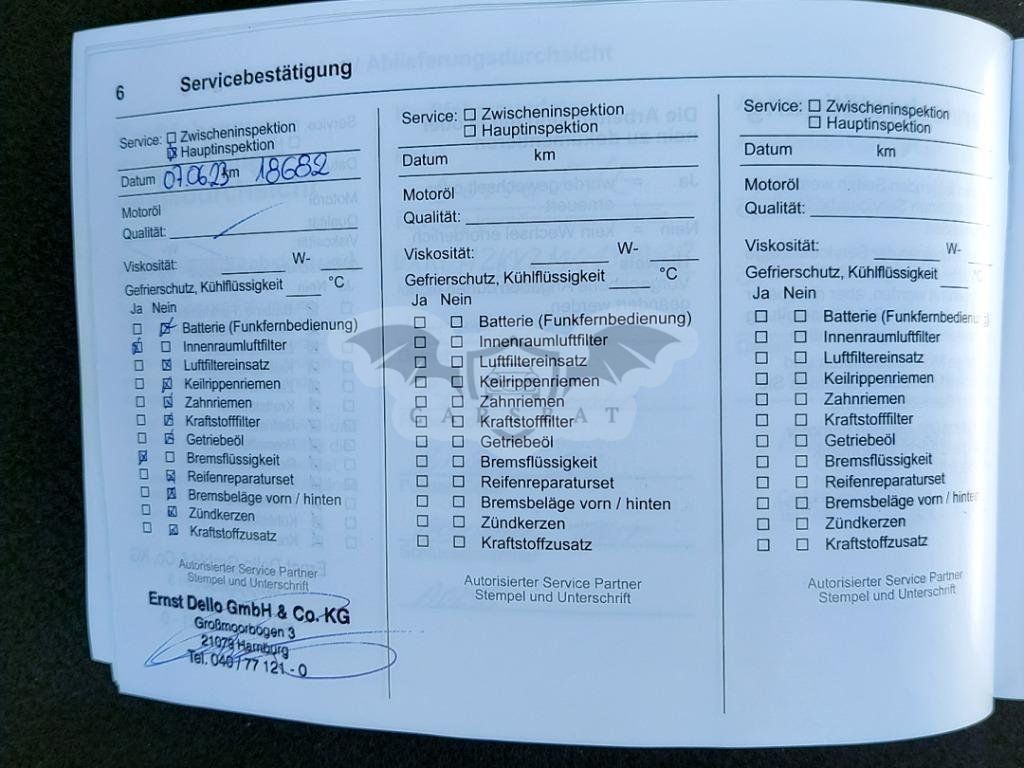 6 Servicebestätigung
Service: Zwischeninspektion
Hauptinspektion
Datum 07.06.23 km 18682
Motoröl
Qualität:
Viskosität: W-
Gefrierschutz, Kühlflüssigkeit °C
Ja Nein
Batterie (Funkfernbedienung)
Innenraumluftfilter
Luftfiltereinsatz
Keilrippenriemen
Zahnriemen
Kraftstofffilter
Getriebeöl
Bremsflüssigkeit
Reifenreparaturset
Bremsbeläge vorn / hinten
Zündkerzen
Kraftstoffzusatz
Autorisierter Service Partner
Stempel und Unterschrift
Ernst Dello GmbH & Co. KG
Großmoorbogen 3
21079 Hamburg
Tel. 040 / 77 121 - 0
Service: Zwischeninspektion
Hauptinspektion
Datum km
Motoröl
Qualität:
Viskosität: W-
Gefrierschutz, Kühlflüssigkeit °C
Ja Nein
Batterie (Funkfernbedienung)
Innenraumluftfilter
Luftfiltereinsatz
Keilrippenriemen
Zahnriemen
Kraftstofffilter
Getriebeöl
Bremsflüssigkeit
Reifenreparaturset
Bremsbeläge vorn / hinten
Zündkerzen
Kraftstoffzusatz
Autorisierter Service Partner
Stempel und Unterschrift
CARSBAT
Service: Zwischeninspektion
Hauptinspektion
Datum km
Motoröl
Qualität:
Viskosität: W-
Gefrierschutz, Kühlflüssigkeit
Ja Nein
Batterie (Funkfernbedienung)
Innenraumluftfilter
Luftfiltereinsatz
Keilrippenriemen
Zahnriemen
Kraftstofffilter
Getriebeöl
Bremsflüssigkeit
Reifenreparaturset
Bremsbeläge vorn / hinte
Zündkerzen
Kraftstoffzusatz
Autorisierter Service Partner
Stempel und Unterschrift